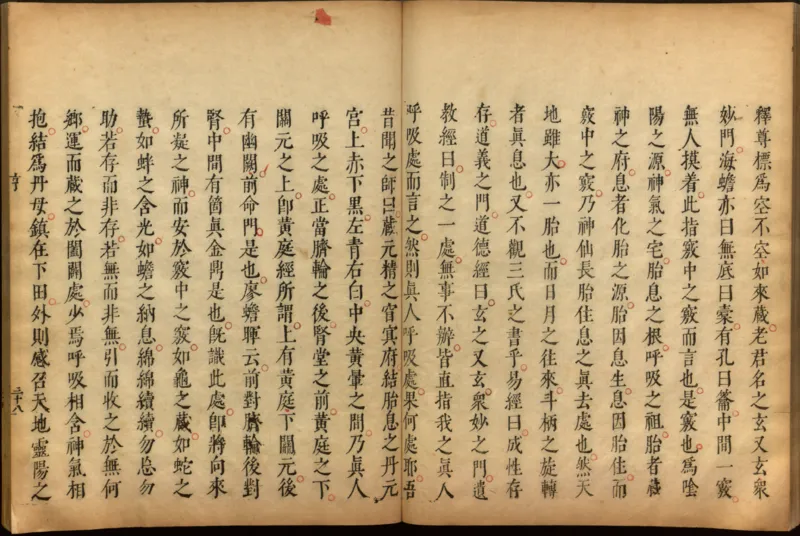 釋尊標爲空不空如來藏老君名之玄又玄衆
妙門海蟾亦曰無底曰橐有孔曰籥中間一竅
無人摸着此指竅中之竅而言也是竅也爲陰
陽之源神氣之宅胎息之根呼吸之祖胎者藏
神之府息者化胎之源胎因息生息因胎住而
竅中之竅乃神仙長胎住息之眞去處也然天
地雖大亦一胎也而日月之往來斗柄之旋轉
者眞息也又不觀三氏之書乎易經曰成性存
存道義之門道德經曰玄之又玄衆妙之門遺
教經曰制之一處無事不辦皆直指我之眞人
呼吸處而言之然則眞人呼吸處果何處耶吾
昔聞之師曰藏元精之窅冥府結胎息之丹元
宮上赤下黑左青右白中央黃暈之間乃眞人
呼吸之處正當臍輪之後腎堂之前黃庭之下
關元之上卽黃庭經所謂上有黃庭下關元後
有幽闕前命門是也廖蟾暉云前對臍輪後對
腎中間有箇眞金鼎是也旣識此處卽將向來
所凝之神而安於竅中之竅如龜之藏如蛇之
蟄如蚌之含光如蟾之納息綿綿續續勿忘勿
助若存而非存若無而非無引而收之於無何
鄉運而藏之於闔闢處少焉呼吸相含神氣相
抱結爲丹母鎮在下田外則感召天地靈陽之
亨
三十八